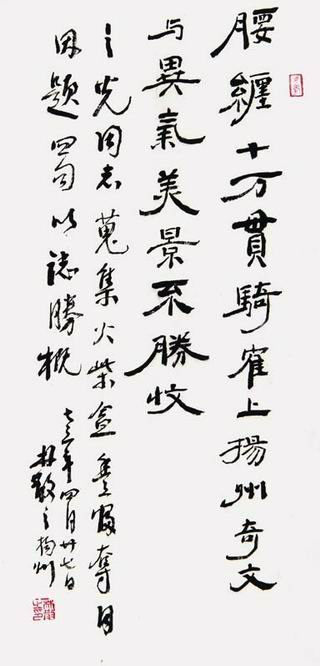 腰纏十万貫騎隺上揚州奇文
与異氣美景不勝收
之光同志蒐集火柴盒豐富奪目
因題四句以誌勝概
七三年四月廿七日
林散之揚州